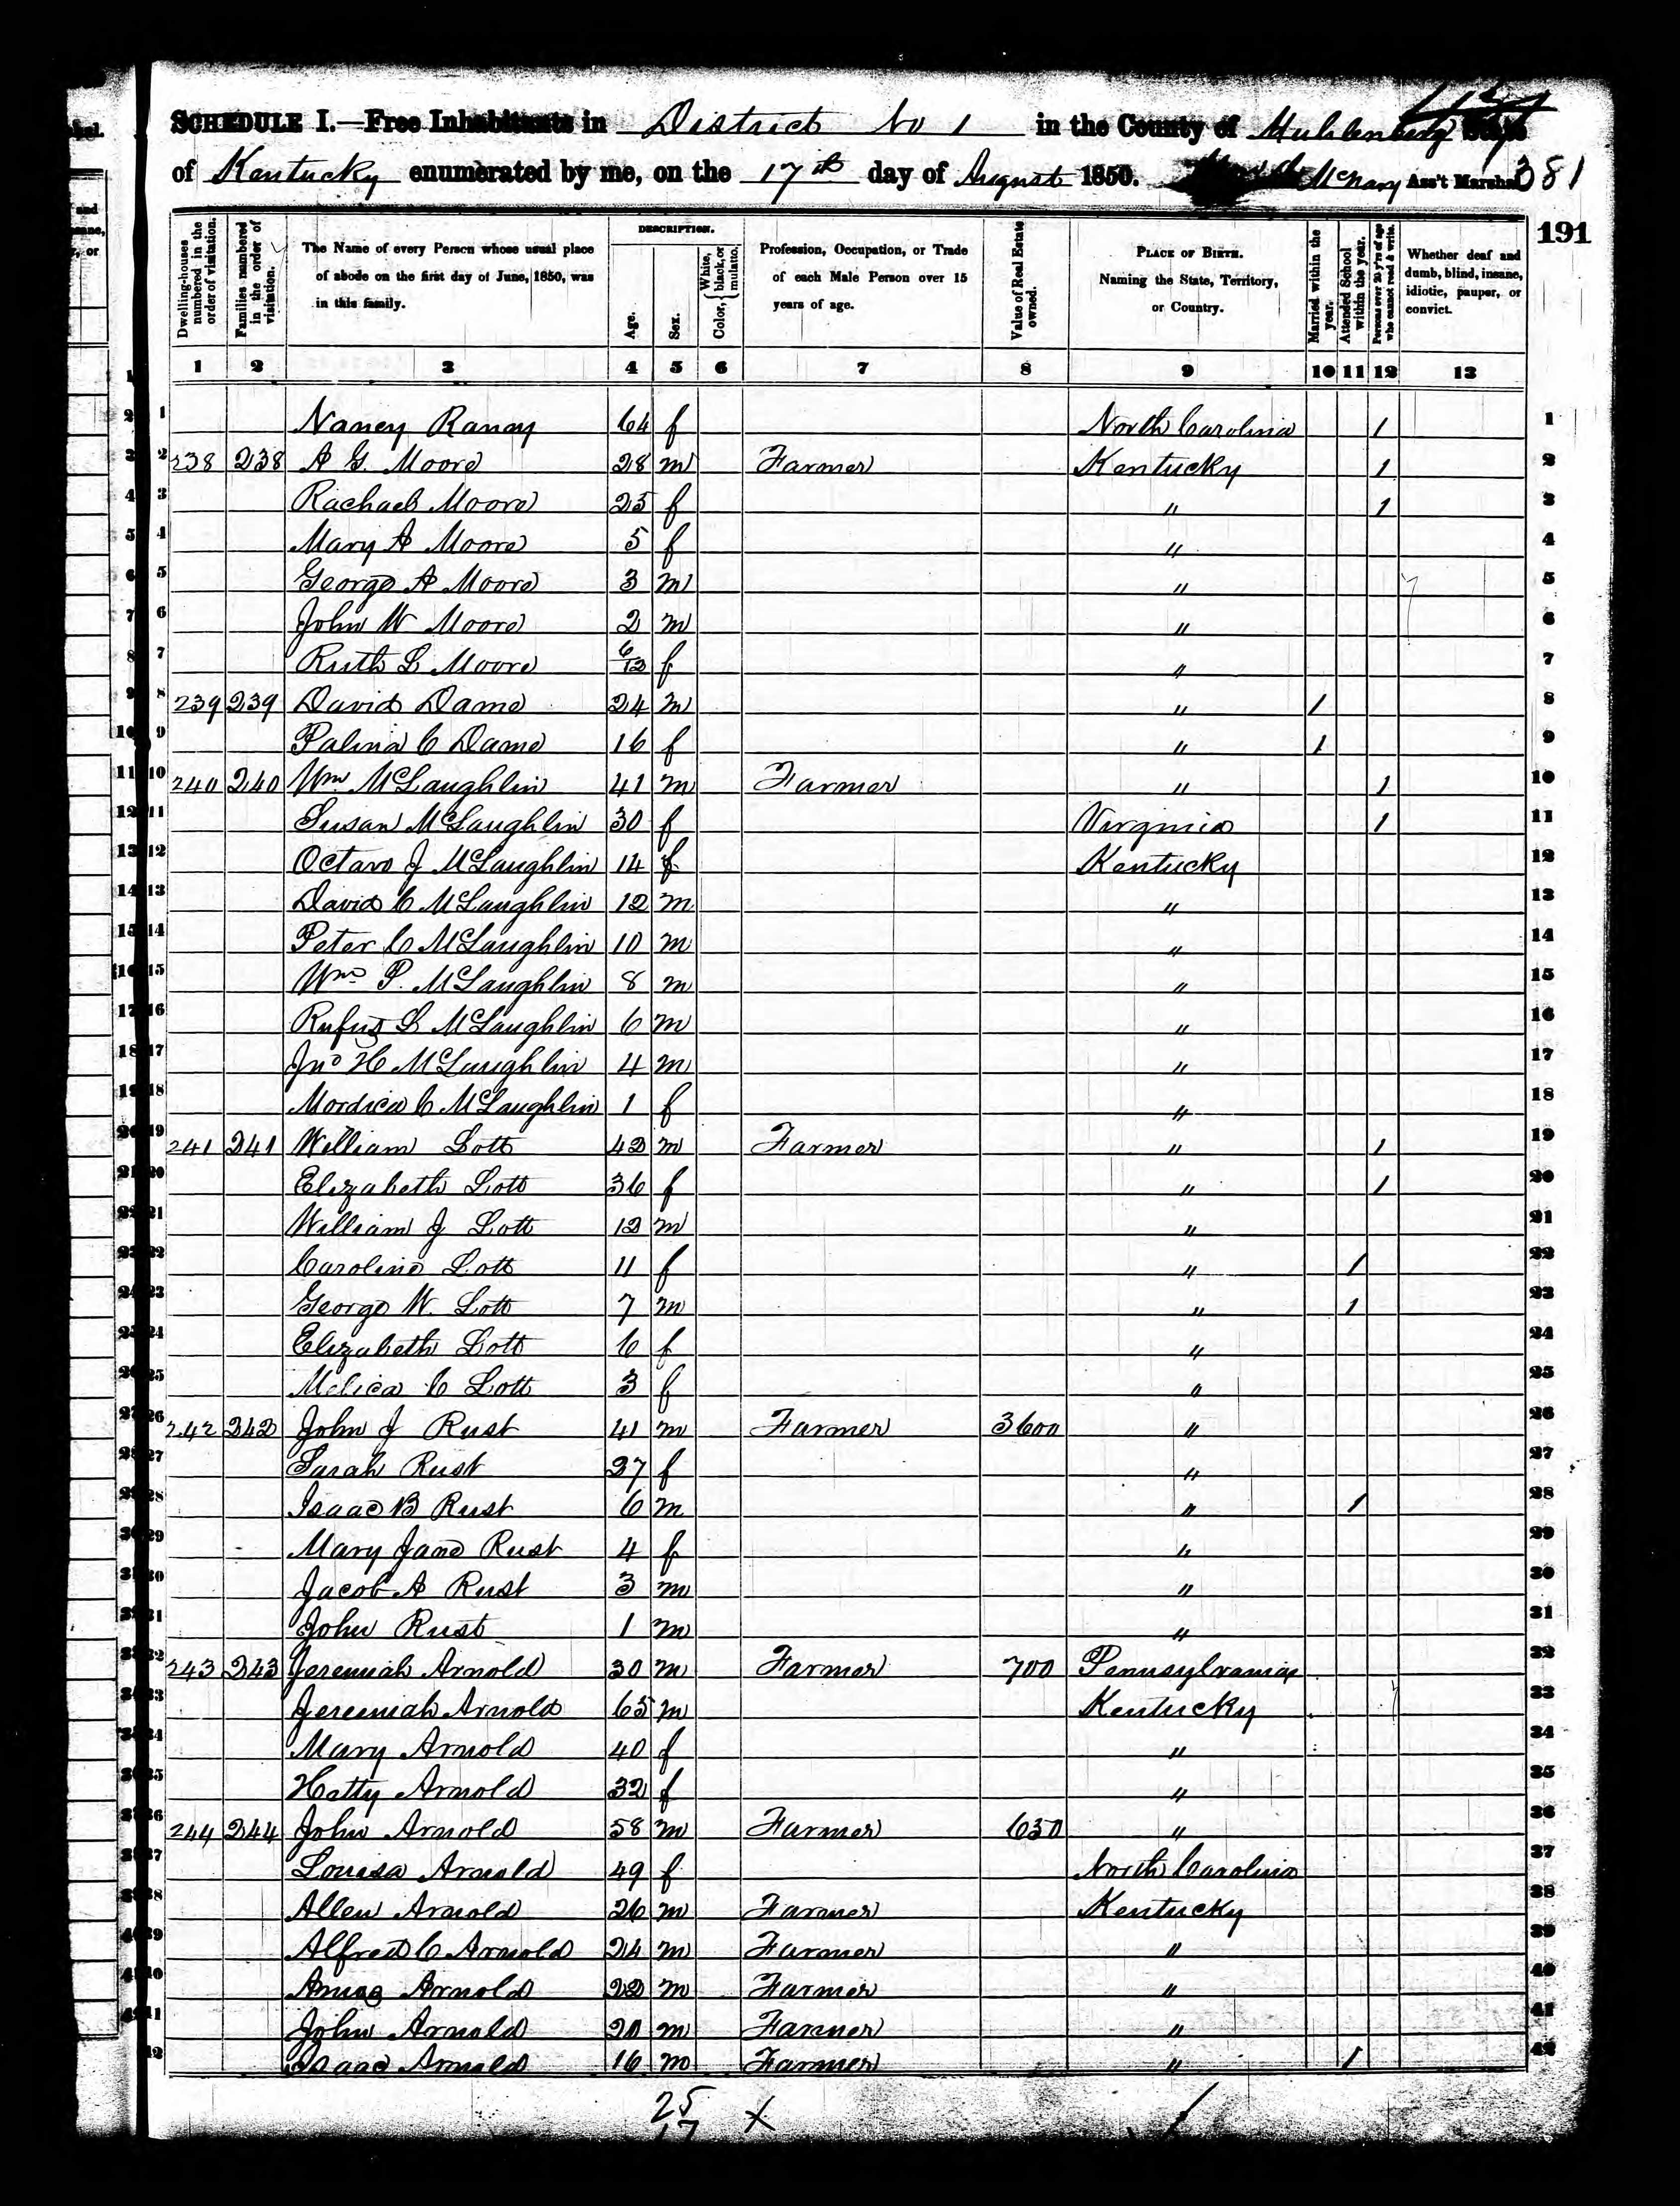 SCHEDULE I.—Free Inhabitants in District No 1 in the County of Muhlenberg State
of Kentucky enumerated by me, on the 17th day of August 1850. McNary Ass't Marshal 381
191
Dwelling-houses numbered in the order of visitation.
Families numbered in the order of visitation.
The Name of every Person whose usual place of abode on the first day of June, 1850, was in this family.
DESCRIPTION.
Age.
Sex.
Color, { White, black, or mulatto.
Profession, Occupation, or Trade of each Male Person over 15 years of age.
Value of Real Estate owned.
PLACE OF BIRTH. Naming the State, Territory, or Country.
Married within the year.
Attended School within the year.
Persons over 20 y'rs of age who cannot read & write.
Whether deaf and dumb, blind, insane, idiotic, pauper, or convict.
1 2 3 4 5 6 7 8 9 10 11 12 13
1 Nancy Raney 64 f North Carolina 1 1
2 238 238 A G. Moore 28 m Farmer Kentucky 1 2
3 Rachael Moore 25 f " 1 3
4 Mary A Moore 5 f " 4
5 George A Moore 3 m " 5
6 John W Moore 2 m " 6
7 Ruth L Moore 6/12 f " 7
8 239 239 David Dame 24 m " 1 8
9 Palina C Dame 16 f " 1 9
10 240 240 Wm McLaughlin 41 m Farmer " 1 10
11 Susan McLaughlin 30 f Virginia 1 11
12 Octavo J McLaughlin 14 f Kentucky 12
13 David C McLaughlin 12 m " 13
14 Peter C McLaughlin 10 m " 14
15 Wm P. McLaughlin 8 m " 15
16 Rufus L McLaughlin 6 m " 16
17 Jno H McLaughlin 4 m " 17
18 Mordica C McLaughlin 1 f " 18
19 241 241 William Lott 42 m Farmer " 1 19
20 Elizabeth Lott 36 f " 1 20
21 William J Lott 12 m " 21
22 Caroline Lott 11 f " 1 22
23 George W. Lott 7 m " 1 23
24 Elizabeth Lott 6 f " 24
25 Melica C Lott 3 f " 25
26 242 242 John J Rust 41 m Farmer 3600 " 26
27 Sarah Rust 27 f " 27
28 Isaac B Rust 6 m " 1 28
29 Mary Jane Rust 4 f " 29
30 Jacob A Rust 3 m " 30
31 John Rust 1 m " 31
32 243 243 Jeremiah Arnold 30 m Farmer 700 Pennsylvania 32
33 Jeremiah Arnold 65 m Kentucky 33
34 Mary Arnold 40 f " 34
35 Hetty Arnold 32 f " 35
36 244 244 John Arnold 58 m Farmer 630 " 36
37 Louisa Arnold 49 f North Carolina 37
38 Allen Arnold 26 m Farmer Kentucky 38
39 Alfred C Arnold 24 m Farmer " 39
40 Amos Arnold 22 m Farmer " 40
41 John Arnold 20 m Farmer " 41
42 Isaac Arnold 16 m Farmer " 1 42
25
17